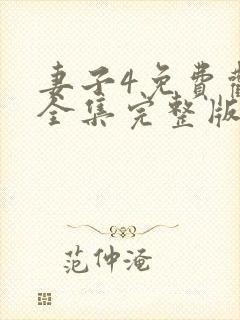 妻子4免費
全集完整版
范仲淹